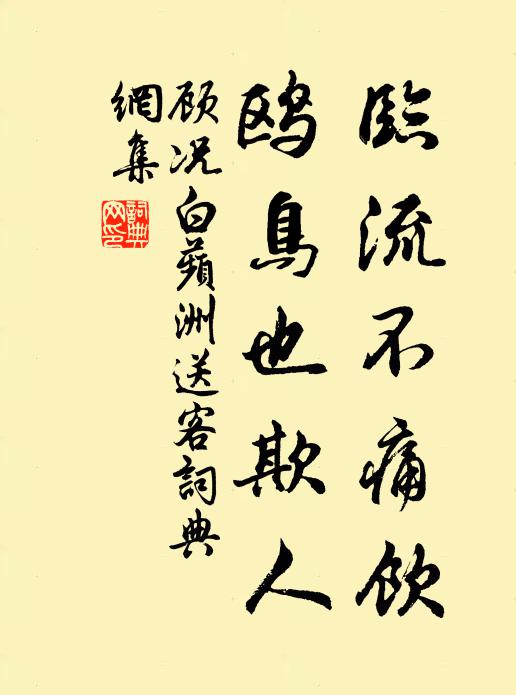 臨流不痛飲
鷗鳥也欺人
顾况白蘋洲送客詞典
網集
詞典
网印